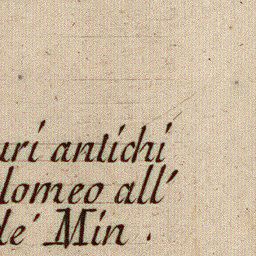 uri antichi
lomeo all'
de' Min .